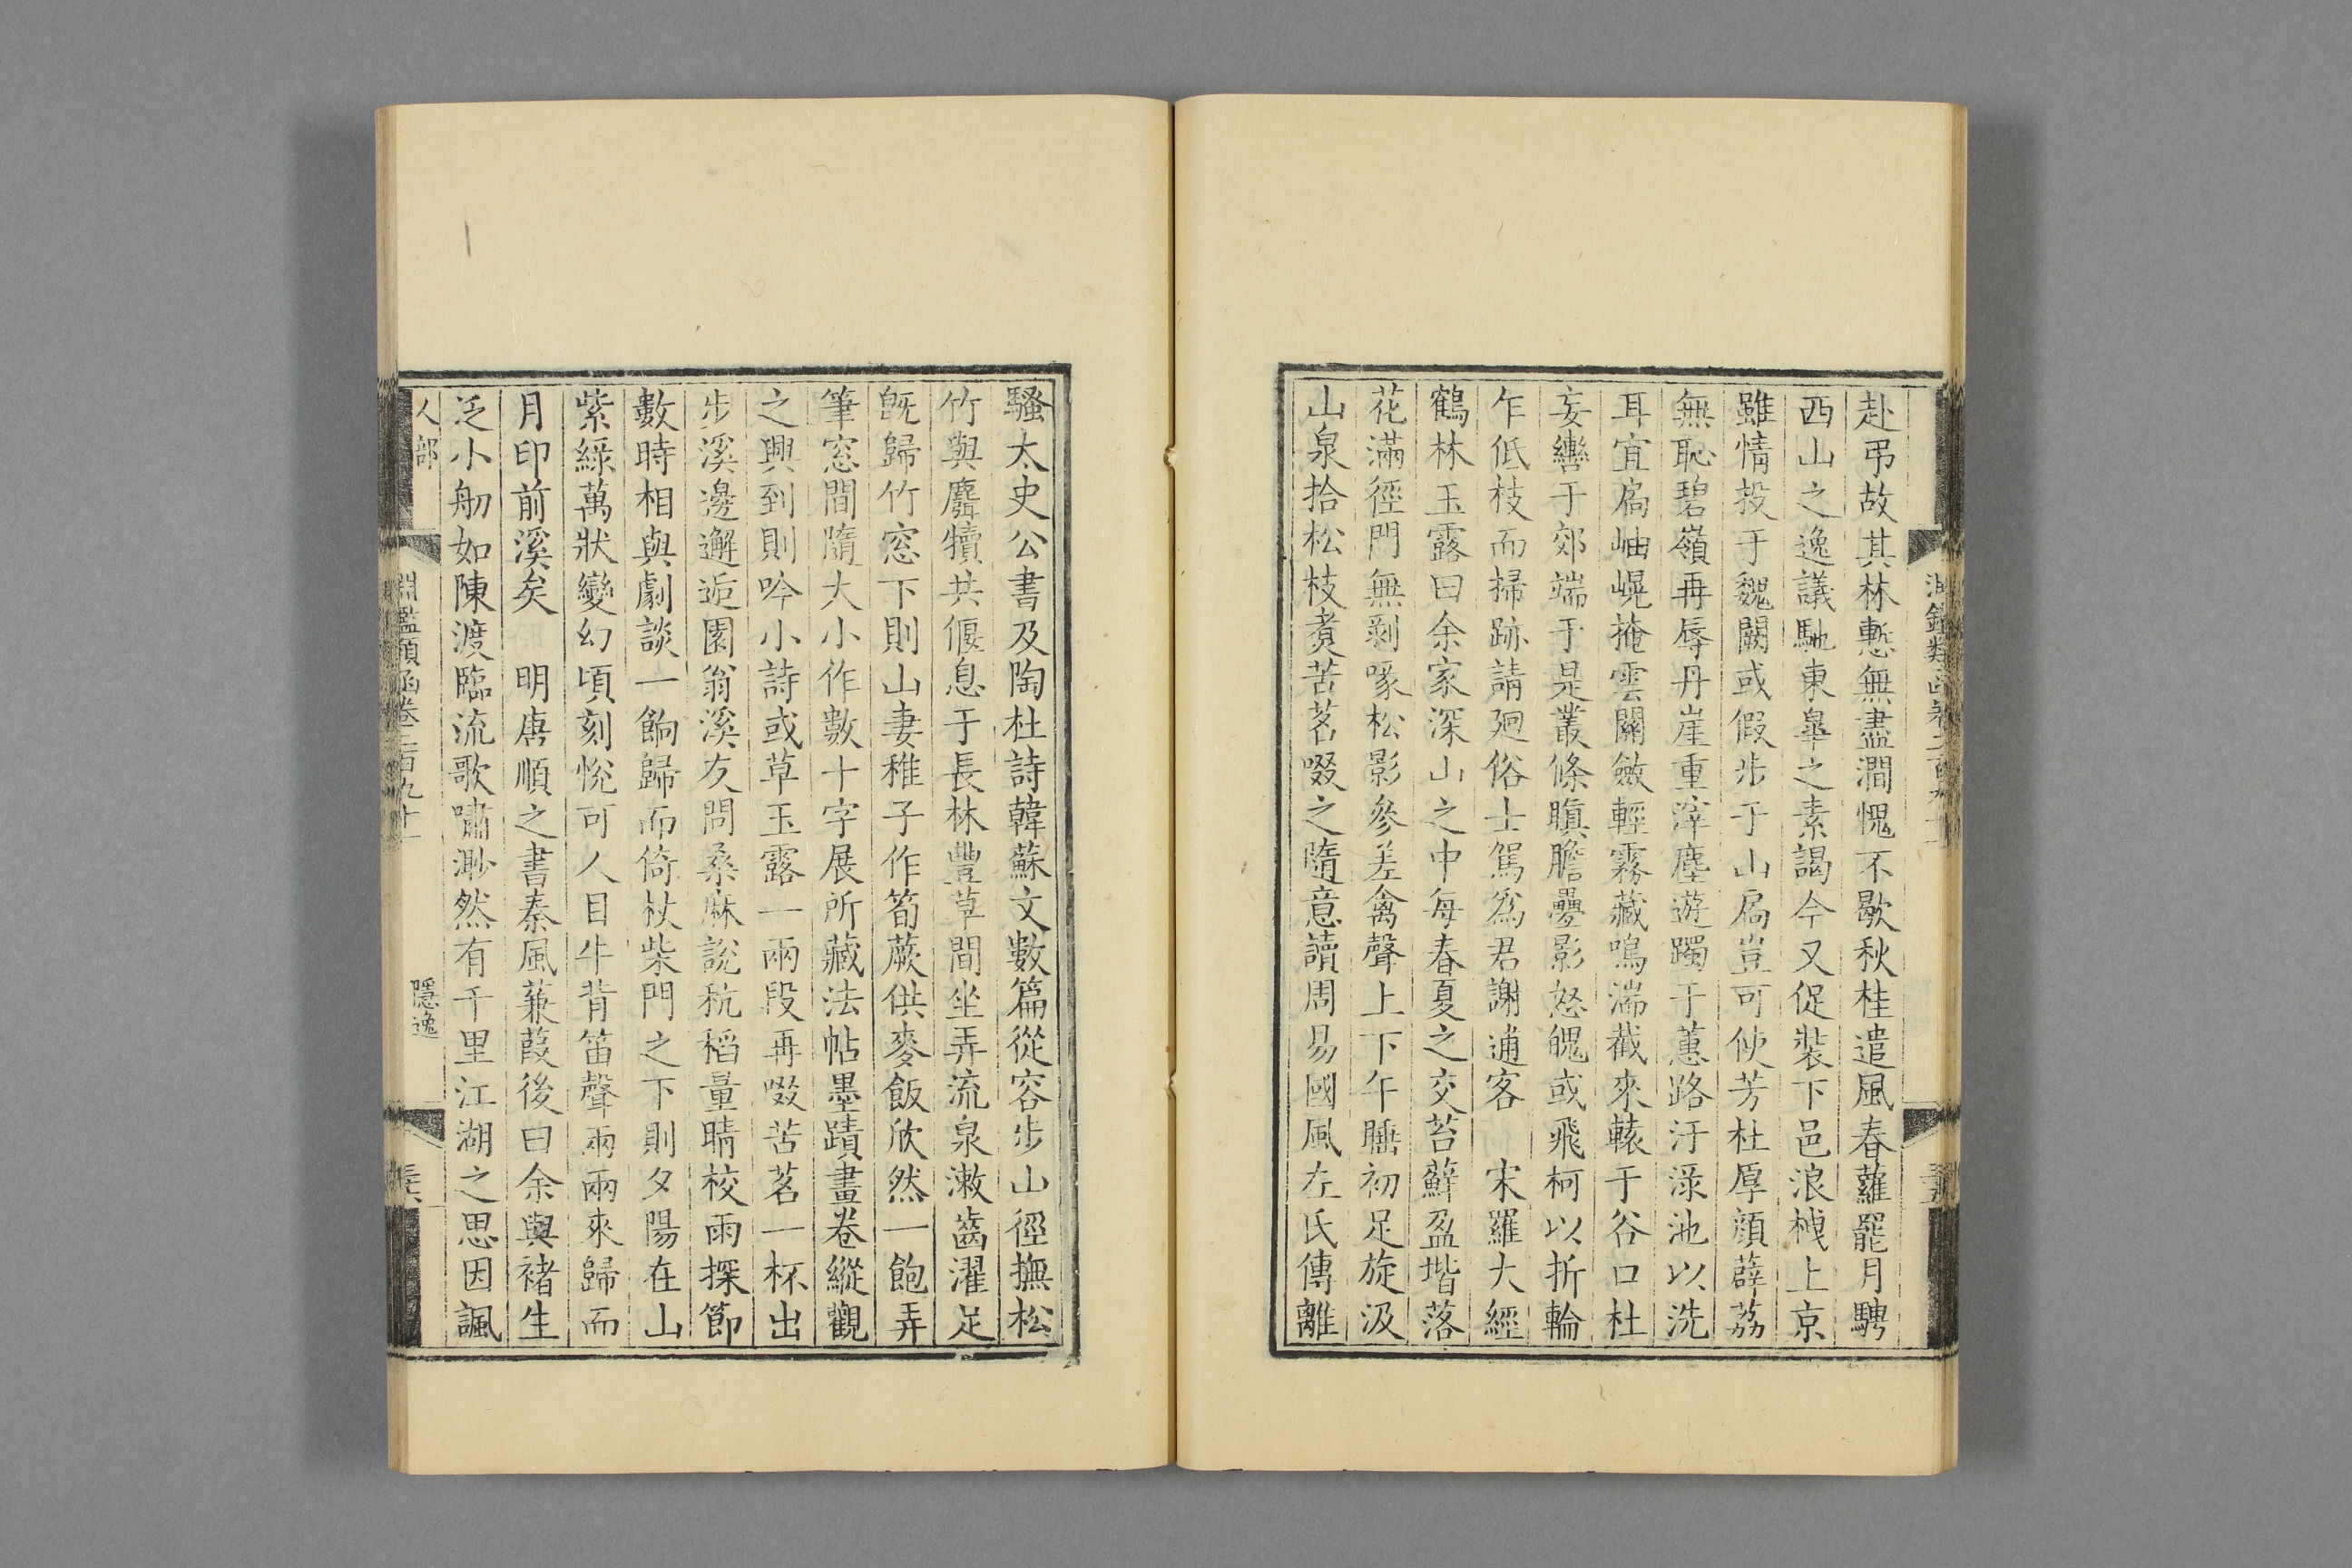 赴弔故其林慙無盡澗愧不歇秋桂遣風春蘿罷月騁
西山之逸議馳東皐之素謁今又促裝下邑浪栧上京
雖情投于魏闕或假步于山扃豈可使芳杜厚顔薜荔
無恥碧嶺再辱丹崖重滓塵遊躅于蕙路汙淥池以洗
耳宜扃岫幌掩雲關斂輕霧藏鳴湍截來轅于谷口杜
妄轡于郊端于是叢條瞋膽疊影怒魄或飛柯以折輪
乍低枝而掃跡請廻俗士駕爲君謝逋客　宋羅大經
鶴林玉露曰余家深山之中每春夏之交苔蘚盈堦落
花滿徑門無剥啄松影參差禽聲上下午睡初足旋汲
山泉拾松枝煑苦茗啜之隨意讀周易國風左氏傳離
騷太史公書及陶杜詩韓蘇文數篇從容步山徑撫松
竹與麛犢共偃息于長林豐草間坐弄流泉漱齒濯足
旣歸竹窓下則山妻稚子作筍蕨供麥飯欣然一飽弄
筆窓間隨大小作數十字展所藏法帖墨蹟畫卷縱觀
之興到則吟小詩或草玉露一兩段再啜苦茗一杯出
步溪邊邂逅園翁溪友問桑麻說秔稻量晴校雨探節
數時相與劇談一餉歸而倚杖柴門之下則夕陽在山
紫綠萬狀變幻頃刻恍可人目牛背笛聲兩兩來歸而
月印前溪矣　明唐順之書秦風蒹葭後曰余與褚生
泛小舠如陳渡臨流歌嘯渺然有千里江湖之思因諷
人部
淵鑑類函卷二百九十一
隱逸